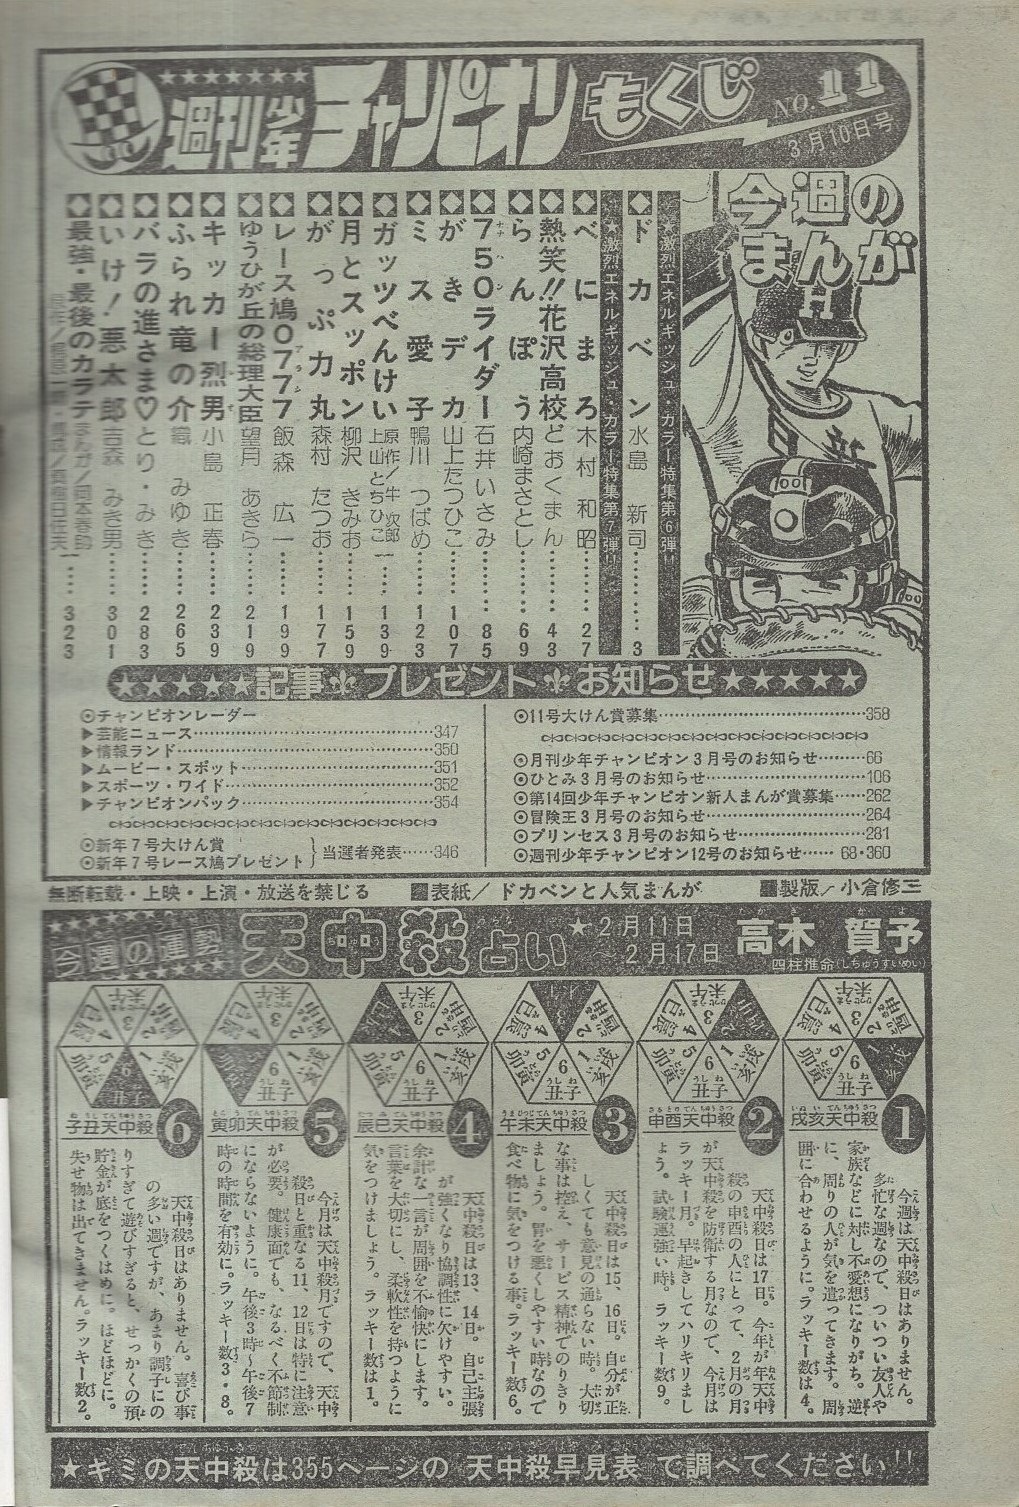 週刊少年チャンピオン もくじ NO.11
3月10日号
今週の
まんが
★激烈エネルギッシュ・カラー特集第⑥弾!!
ドカベン 水島新司………3
★激烈エネルギッシュ・カラー特集第⑦弾!!
べにまろ 木村和昭……27
熱笑!!花沢高校 どおくまん……43
らんぽう 内崎まさとし……69
750ライダー 石井いさみ……85
がきデカ 山上たつひこ……107
ミス愛子 鴨川つばめ……123
ガッツべんけい 原作/牛次郎 上山とちひこ……139
月とスッポン 柳沢きみお……159
がっぷ力丸 森村たつお……177
レース鳩0777 飯森広一……199
ゆうひが丘の総理大臣 望月あきら……219
キッカー烈男 小島正春……239
ふられ竜の介 織みゆき……265
バラの進さま♡ とり・みき……283
いけ!悪太郎 吉森みき男……301
最強・最後のカラテ ……323
★★★★★記事⚜プレゼント⚜お知らせ★★★★★
⊙チャンピオンレーダー
▶芸能ニュース……347
▶情報ランド……350
▶ムービー・スポット……351
▶スポーツ・ワイド……352
▶チャンピオンパック……354
⊙新年7号大けん賞
⊙新年7号レース鳩プレゼント}当選者発表……346
⊙11号大けん賞募集……358
⊙月刊少年チャンピオン3月号のお知らせ……66
⊙ひとみ3月号のお知らせ……106
⊙第14回少年チャンピオン新人まんが賞募集……262
⊙冒険王3月号のお知らせ……264
⊙プリンセス3月号のお知らせ……281
⊙週刊少年チャンピオン12号のお知らせ……68・360
無断転載・上映・上演・放送を禁じる 表紙/ドカベンと人気まんが 製版/小倉修三
今週の運勢 天中殺占い ★2月11日~2月17日 高木賀予
四柱推命(しちゅうすいめい)
1 戌亥天中殺
今週は天中殺日はありません。
多忙な週なので、ついつい友人や
家族などに対し不愛想になりがち。逆
に、周りの人が気を遣ってきます。周
囲に合わせるように。ラッキー数は4。
2 申酉天中殺
天中殺日は17日。今年が年天中
殺の申酉の人にとって、2月の月
が天中殺を防衛する月なので、今月は
ラッキー月。早起きしてハリキリまし
ょう。試験運強い時。ラッキー数9。
3 午未天中殺
天中殺日は15、16日。自分が正
しくても意見の通らない時。大切
な事は控え、サービス精神でのりきり
ましょう。胃を悪くしやすい時なので
食べ物に気をつける事。ラッキー数6。
4 辰巳天中殺
天中殺日は13、14日。自己主張
が強くなり協調性に欠けやすい。
余計な一言が周囲を不愉快にします。
言葉を大切にし、柔軟性を持つように
気をつけましょう。ラッキー数は1。
5 寅卯天中殺
今月は天中殺月ですので、天中
殺日と重なる11、12日は特に注意
が必要。健康面でも、なるべく不節制
にならないように。午後3時~午後7
時の時間を有効に。ラッキー数3・8。
6 子丑天中殺
天中殺日はありません。喜び事
の多い週ですが、あまり調子にの
りすぎて遊びすぎると、せっかくの預
貯金が底をつくはめに。ほどほどに。
失せ物は出てきません。ラッキー数2。
★キミの天中殺は355ページの 天中殺早見表 で調べてください!!